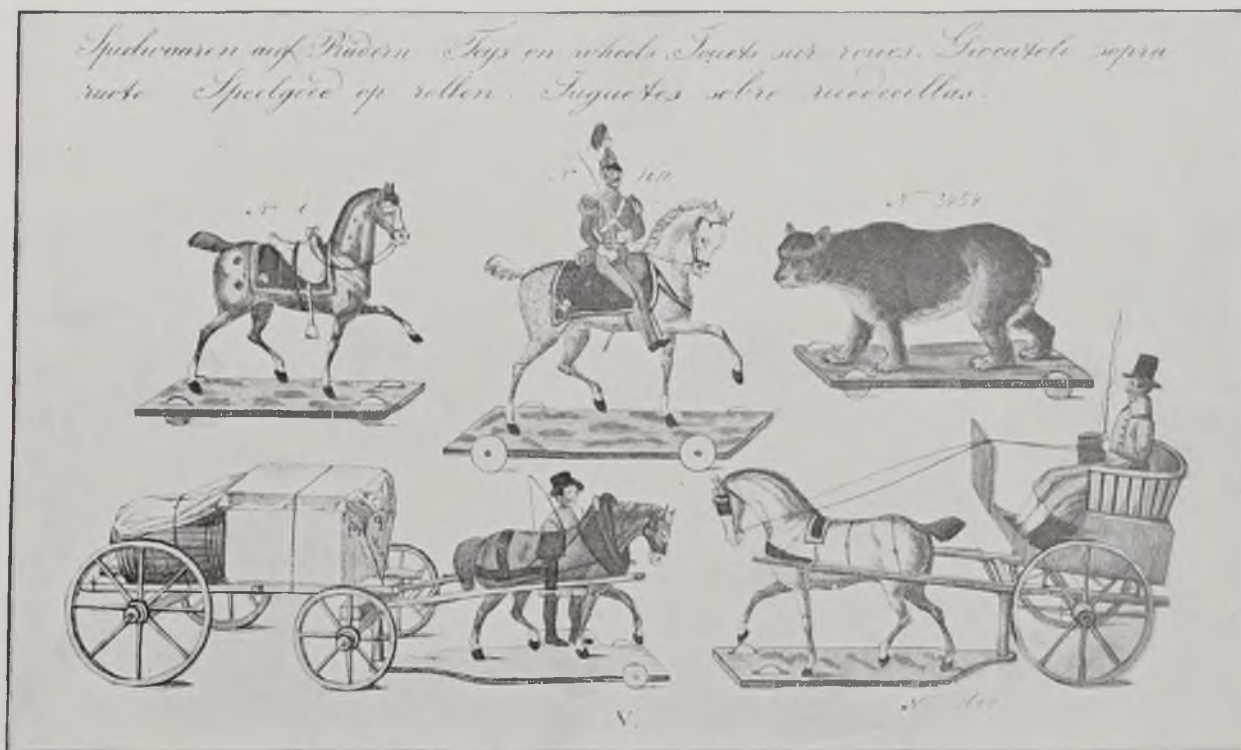 Spielwaaren auf Rädern Toys on wheels Jouets sur roues. Giocatole sopra
ruote Speelgoed op rollen. Juguetes sobre ruedecillas.
N 1
N
N 3454
N
V.